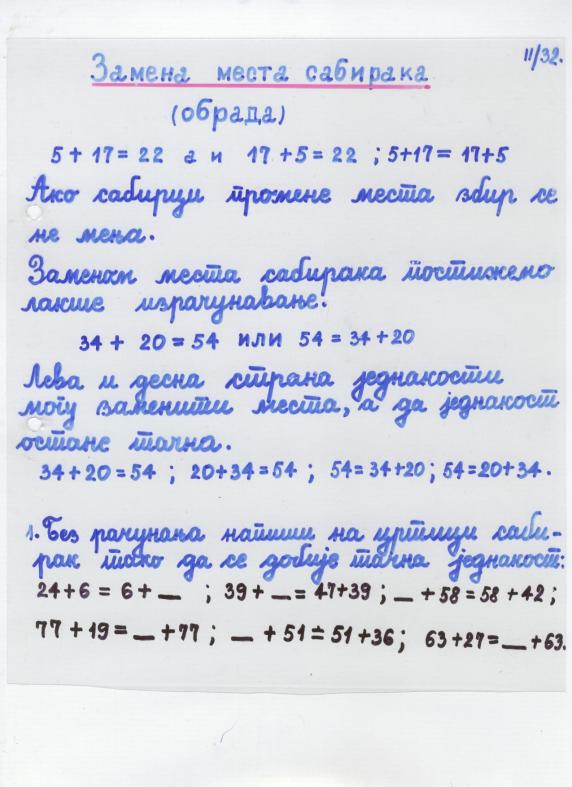 II/32.
Замена места сабирака
(обрада)
5 + 17 = 22 а и 17 + 5 = 22 ; 5+17 = 17+5
Ако сабирци промене места збир се
не мења.
Заменом места сабирака постижемо
лакше израчунавање.
34 + 20 = 54 или 54 = 34 + 20
Лева и десна страна једнакости
могу заменити места, а да једнакост
остане тачна.
34 + 20 = 54 ; 20 + 34 = 54 ; 54 = 34 + 20 ; 54 = 20 + 34.
1. Без рачунања напиши на цртици саби-
рак тако да се добије тачна једнакост:
24 + 6 = 6 + __ ; 39 + __ = 47 + 39 ; __ + 58 = 58 + 42 ;
77 + 19 = __ + 77 ; __ + 51 = 51 + 36 ; 63 + 27 = __ + 63.